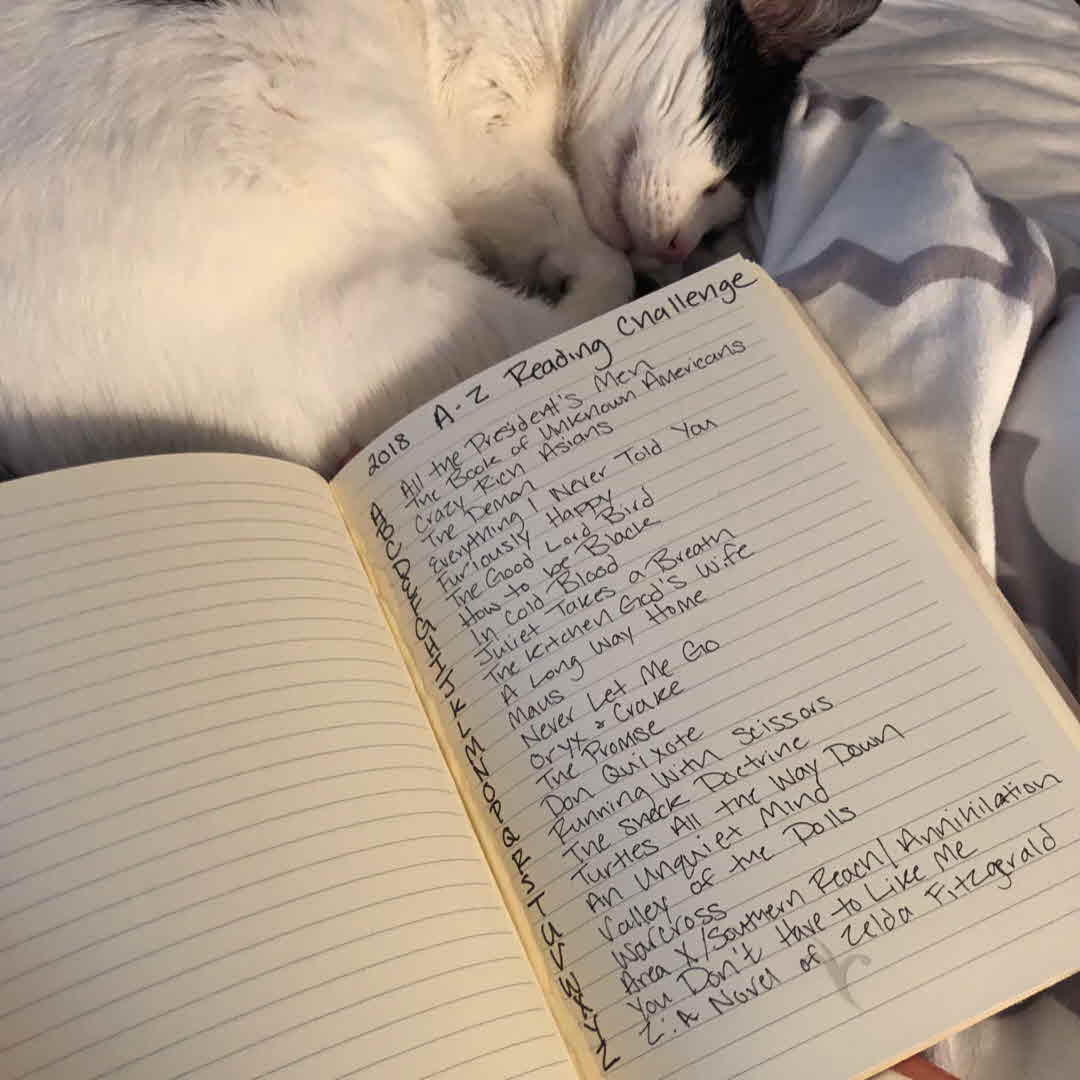 2018 A-Z Reading Challenge
A All the President's Men
B The Book of Unknown Americans
C Crazy Rich Asians
D The Demon
E Everything I Never Told You
F Furiously Happy
G The Good Lord Bird
H How to be Black
I In Cold Blood
J Juliet Takes a Breath
K The Kitchen God's Wife
L A Long Way Home
M Maus
N Never Let Me Go
O Oryx & Crake
P The Promise
Q Don Quixote
R Running With Scissors
S The Sneck Doctrine
T Turtles All the Way Down
U An Unquiet Mind
V Valley of the Dolls
W Warcross
X Area X/Southern Reach/Annihilation
Y You Don't Have to Like Me
Z Z: A Novel of Zelda Fitzgerald